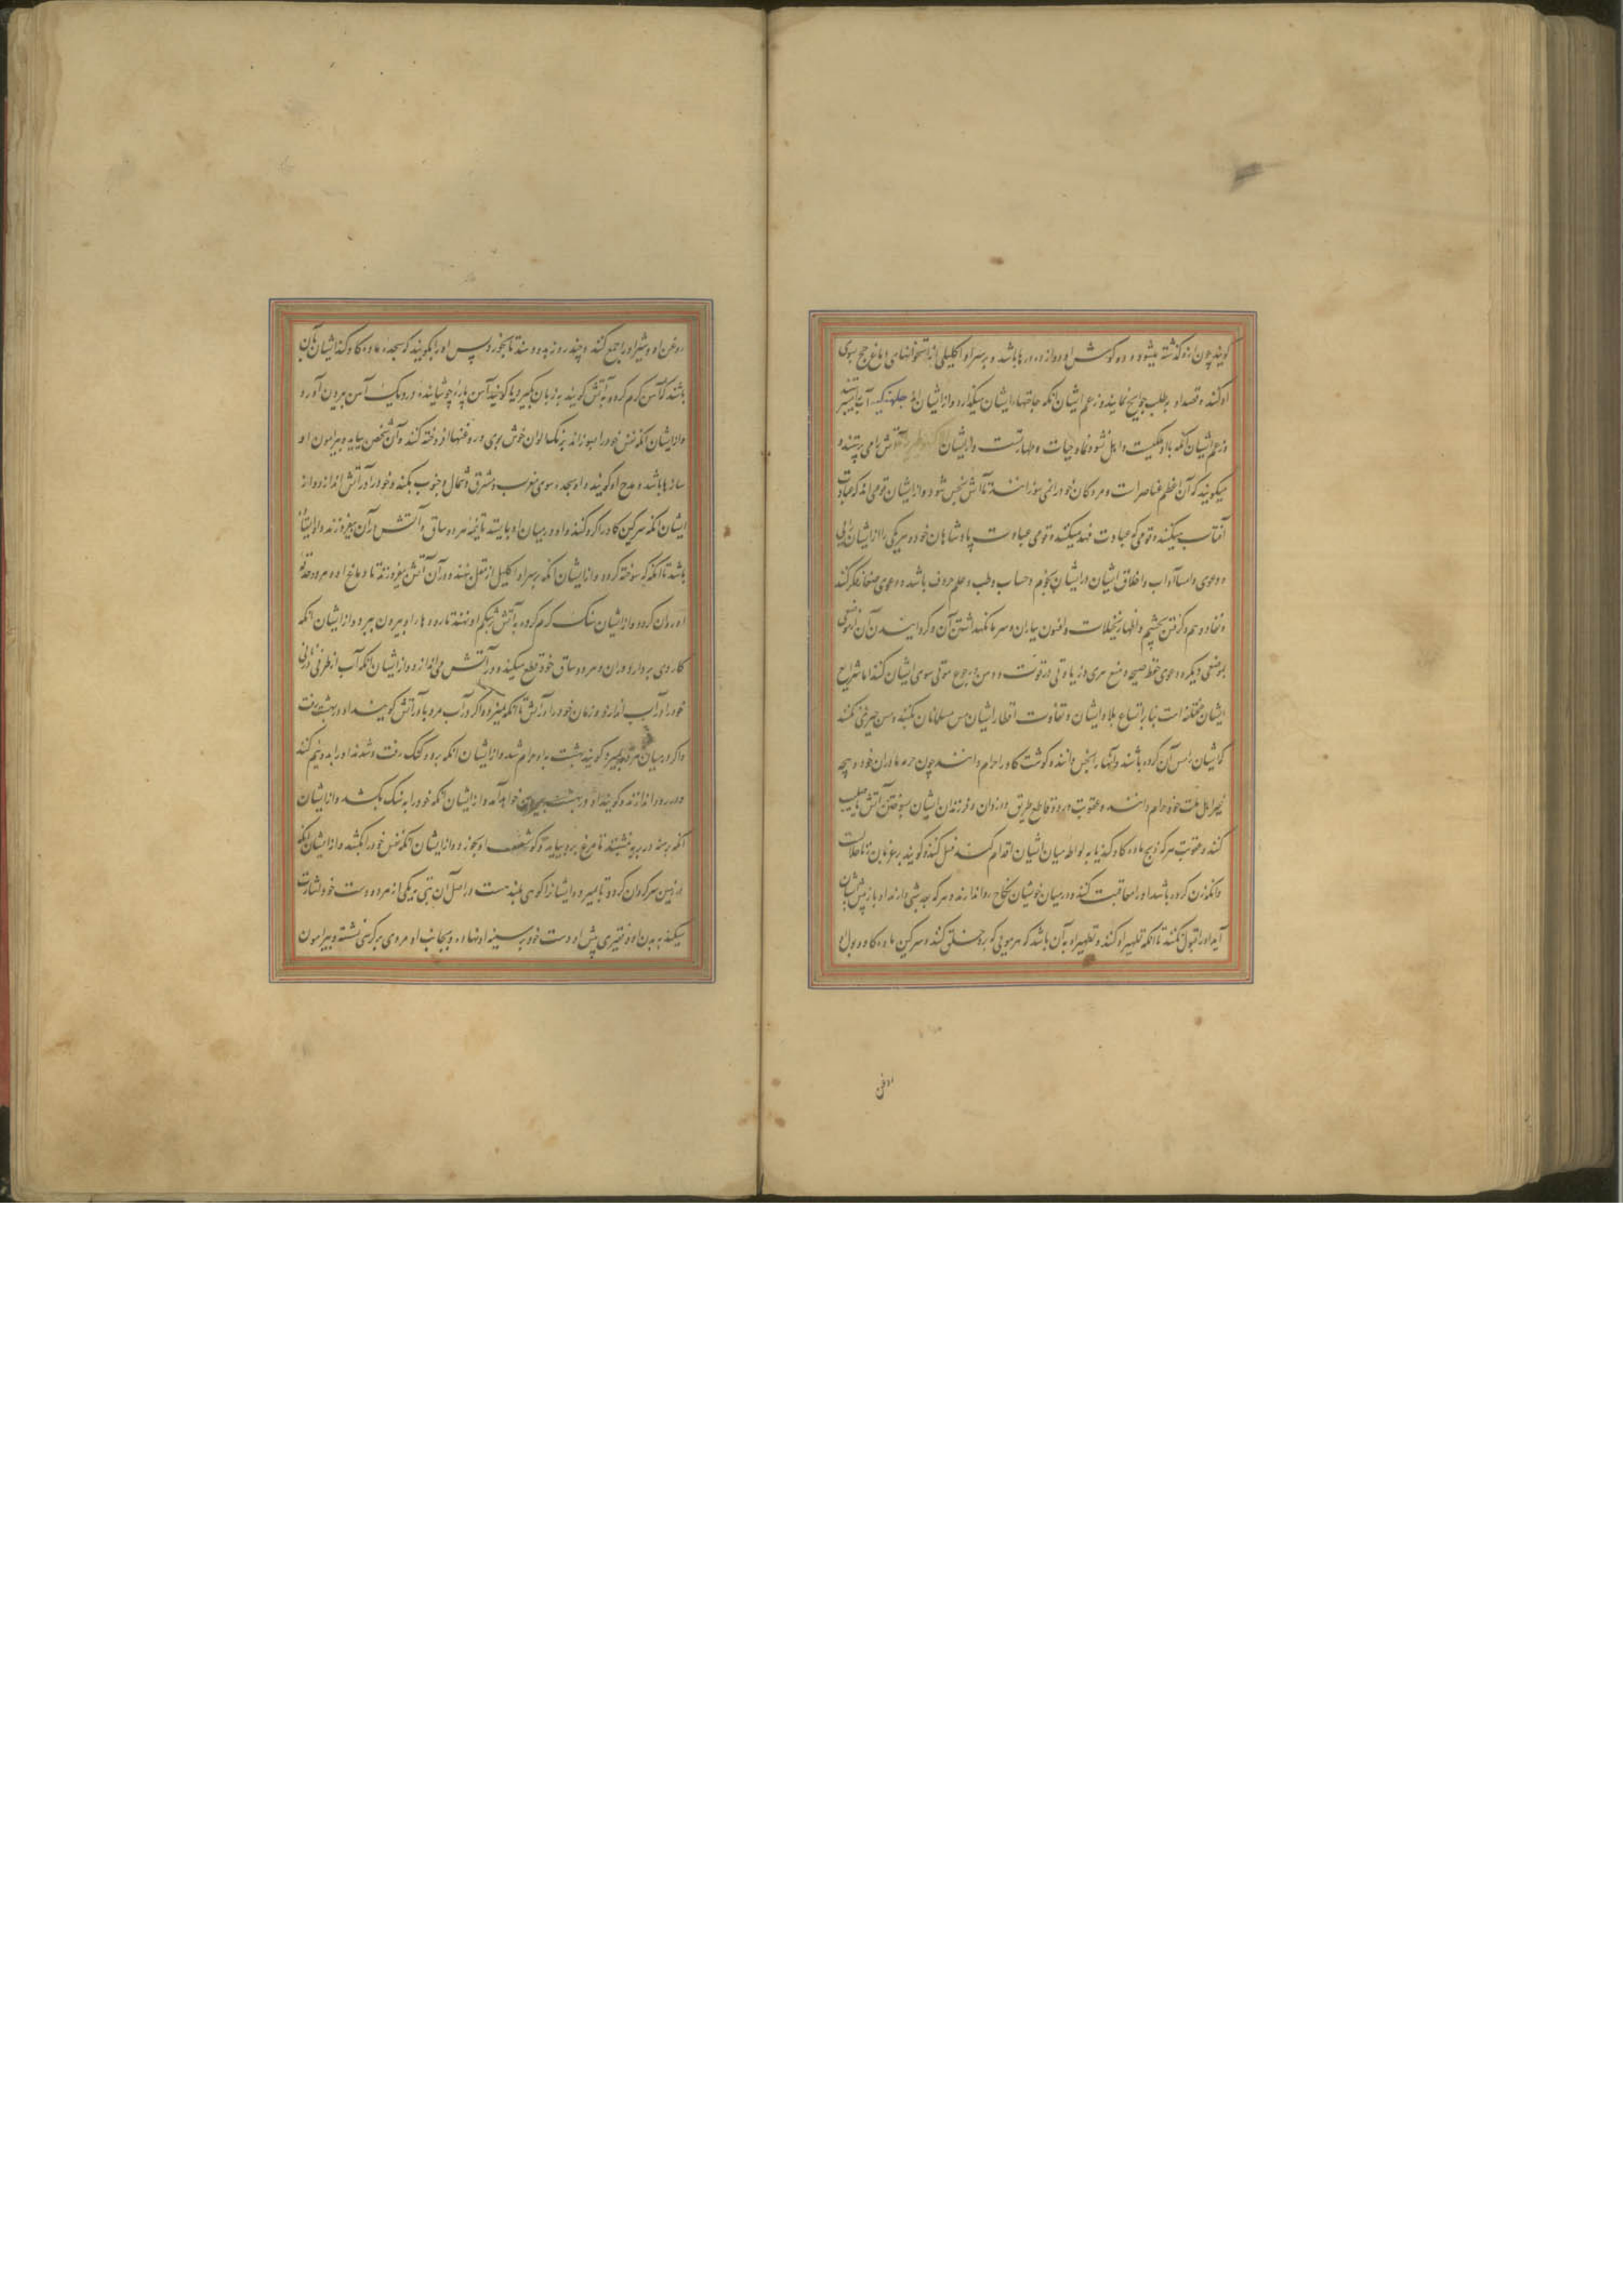 گویند چون از و گذشته میشود و دو گوش او دوازده در ها باشد و بر سر او اکلیلی از استخوانهای دماغ حج سوی
او کنند و قصد او بطلب حوایج نمایند و زعم ایشان آنکه حاجتها را ایشان میگذارد و از ایشان
و زعم ایشان آنکه با او ملکیست و اصل نشو و نما و حیات و طهارتست و از ایشان آتش را می پرستند و
میگویند که آن اعظم عناصر است و مردگان خود را نمی سوزانند تا آتش نجس نشود و از ایشان قومی اند که عبادت
آفتاب میکنند و قومی که عبادت میکنند و قومی عبادت پادشاهان خود و هر یکی را از ایشان
دعوی و اما آداب و اخلاق ایشان در ایشان نجوم و حساب و طب و علم حروف باشد و دعوی کنند
و نفاذ وهم و گرفتن بچشم و اظهار تخیلات و افسون باران و سرما نگهداشتن آن و گردانیدن آن از موضعی
بموضعی دیگر و دعوی حفظ صحت و منع پیری و زیادتی در قوت و رجوع موتی سوی ایشان کنند اما شرایع
ایشان مختلفه است بنا بر اتساع بلاد ایشان و تفاوت اقطار ایشان مس مسلمانان نکنند و مس چیزی نکنند
که ایشان مس آن کرده باشند و آنها را نجس دانند و گوشت گاو را حرام دانند چون حرمت مادران خود و ذبیحه
غیر اهل ملت خود حرام دانند و عقوبت قاطع طریق و دزدان و فرزندان ایشان سوختن آتش یا صلیب
کنند و عقوبت هر که ذبح ماده گاو کند یا به لواطه میان ایشان اقدام کند قتل کنند و گویند بر عزبان زنا حلالست
و آنکه زن کرده باشد او را معاقبت کنند و در میان خویشان نکاح روا ندارند و هر که باز پیش ایشان
آید او را قبول نکنند تا آنکه تطهیر او کنند و تطهیر او به آن باشد که هر مویی که برو حلق کنند و سرگین ماده گاو و بول او
روغن
روغن او و شیر او را جمع کنند و چند روز بدو دهند تا بخورد پس او را بگویند که سجده ماده گاو کند ایشان
باشند که آهن گرم کرده به آتش گویند به زبان بگیر و یا گویند آهن پاره جوشانیده در دیک آهن بیرون آورد
و از ایشان آنکه نفس خود را بسوزاند به رنگ الوان خوش بوی و روغنها افروخته کنند و آن شخص بیاید و پیرامون او
سازها باشد و مدح او گویند و او سجده سوی مغرب و مشرق و شمال و جنوب بکند و خود را در آتش اندازد و از
ایشان آنکه سرگین گاو را گرد کنند و او در میان او بایستد تا نیمه هر دو ساق و آتش در آن بیفروزند و او ایستاده
باشد تا آنکه که سوخته گردد و از ایشان آنکه بر سر او اکلیل از مقل بنهند و در آن آتش بیفروزند تا دماغ او و هر دو حدقه
او روان گردد و از ایشان سنگ گرم کرده به آتش بر شکم او نهند تا روده ها را او بیرون ببرد و از ایشان آنکه
کاردی بردارد و ران و هر دو ساق خود قطع میکند و در آتش می اندازد و از ایشان آنکه آب از طرفی
خود را در آب اندازد و زنان خود را در آتش تا آنکه میرد و اگر در آب مرد یا در آتش گویند او در بهشت رفت
و اگر در میان هر دو بمیرد گویند بهشت بر او حرام شد و از ایشان آنکه برود گنگ رفت و شدند او را به دو نیم کنند
و در رود اندازند و گویند او در بهشت بیرون خواهد آمد و از ایشان آنکه خود را به سنگ بکشد و از ایشان
آنکه برهنه در بریه نشیند تا مرغ برو بیاید و گوشت او بخورد و از ایشان آنکه نفس خود را بکشد و از ایشان آنکه
در زمین سرگردان گردد تا بمیرد و ایشانرا کوهی بلند هست در اصل آن بتی بر یکی از هر دو دست خود اشارت
میکند به بدن او و فقیری پیش او دست خود بر سینه او نهاده و بجانب او مردی بر کرسی نشسته و پیرامون